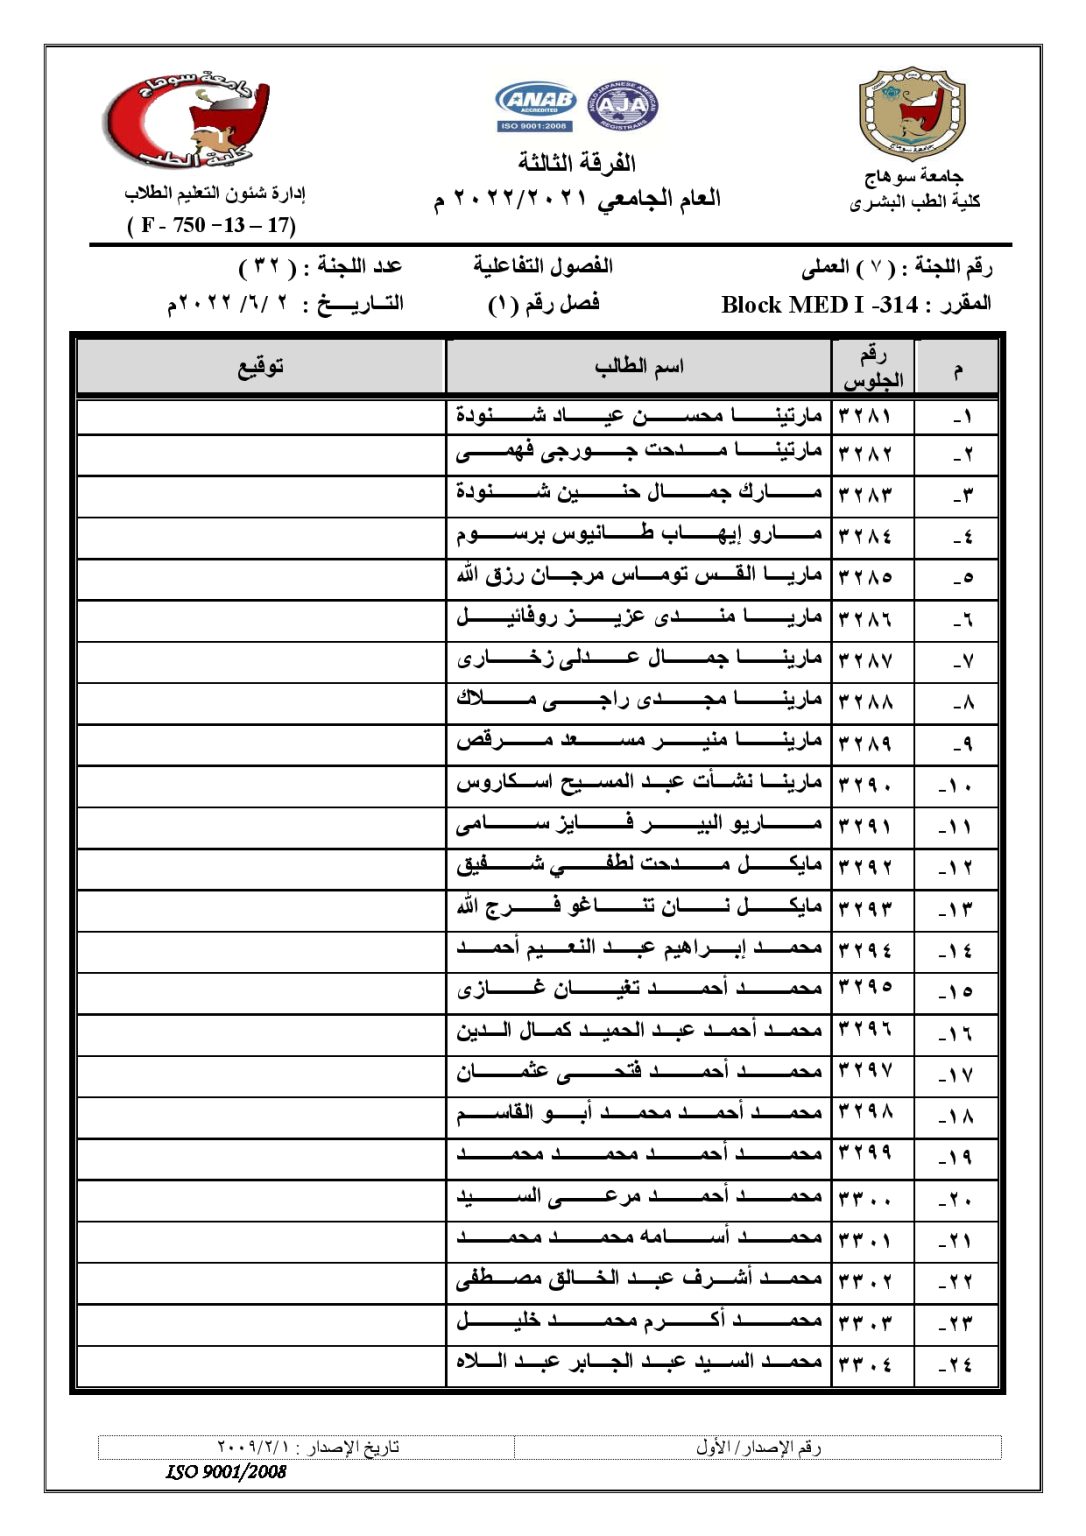 جامعة سوهاج
كلية الطب
ANAB
ACCREDITED
ISO 9001:2008
ANGLO JAPANESE AMERICAN
AJA
REGISTRARS
جامعة سوهاج
جامعة سوهاج
كلية الطب البشرى
الفرقة الثالثة
العام الجامعي ٢٠٢٢/٢٠٢١ م
إدارة شئون التعليم الطلاب
( F - 750 –13 – 17)
رقم اللجنة : ( ٧ ) العملى الفصول التفاعلية عدد اللجنة : ( ٣٢ )
المقرر : Block MED I -314 فصل رقم (١) التـاريـــخ : ٢ /٦/ ٢٠٢٢م
م رقم الجلوس اسم الطالب توقيع
١- ٣٢٨١ مارتينا محسن عياد شنودة
٢- ٣٢٨٢ مارتينا مدحت جورجى فهمى
٣- ٣٢٨٣ مارك جمال حنين شنودة
٤- ٣٢٨٤ مارو إيهاب طانيوس برسوم
٥- ٣٢٨٥ ماريا القس توماس مرجان رزق الله
٦- ٣٢٨٦ ماريا مندى عزيز روفائيل
٧- ٣٢٨٧ مارينا جمال عدلى زخارى
٨- ٣٢٨٨ مارينا مجدى راجى ملاك
٩- ٣٢٨٩ مارينا منير مسعد مرقص
١٠- ٣٢٩٠ مارينا نشأت عبد المسيح اسكاروس
١١- ٣٢٩١ ماريو البير فايز سامى
١٢- ٣٢٩٢ مايكل مدحت لطفي شفيق
١٣- ٣٢٩٣ مايكل نان تناغو فرج الله
١٤- ٣٢٩٤ محمد إبراهيم عبد النعيم أحمد
١٥- ٣٢٩٥ محمد أحمد تغيان غازى
١٦- ٣٢٩٦ محمد أحمد عبد الحميد كمال الدين
١٧- ٣٢٩٧ محمد أحمد فتحى عثمان
١٨- ٣٢٩٨ محمد أحمد محمد أبو القاسم
١٩- ٣٢٩٩ محمد أحمد محمد محمد
٢٠- ٣٣٠٠ محمد أحمد مرعى السيد
٢١- ٣٣٠١ محمد أسامه محمد محمد
٢٢- ٣٣٠٢ محمد أشرف عبد الخالق مصطفى
٢٣- ٣٣٠٣ محمد أكرم محمد خليل
٢٤- ٣٣٠٤ محمد السيد عبد الجابر عبد اللاه
رقم الإصدار/ الأول تاريخ الإصدار : ٢٠٠٩/٢/١
ISO 9001/2008